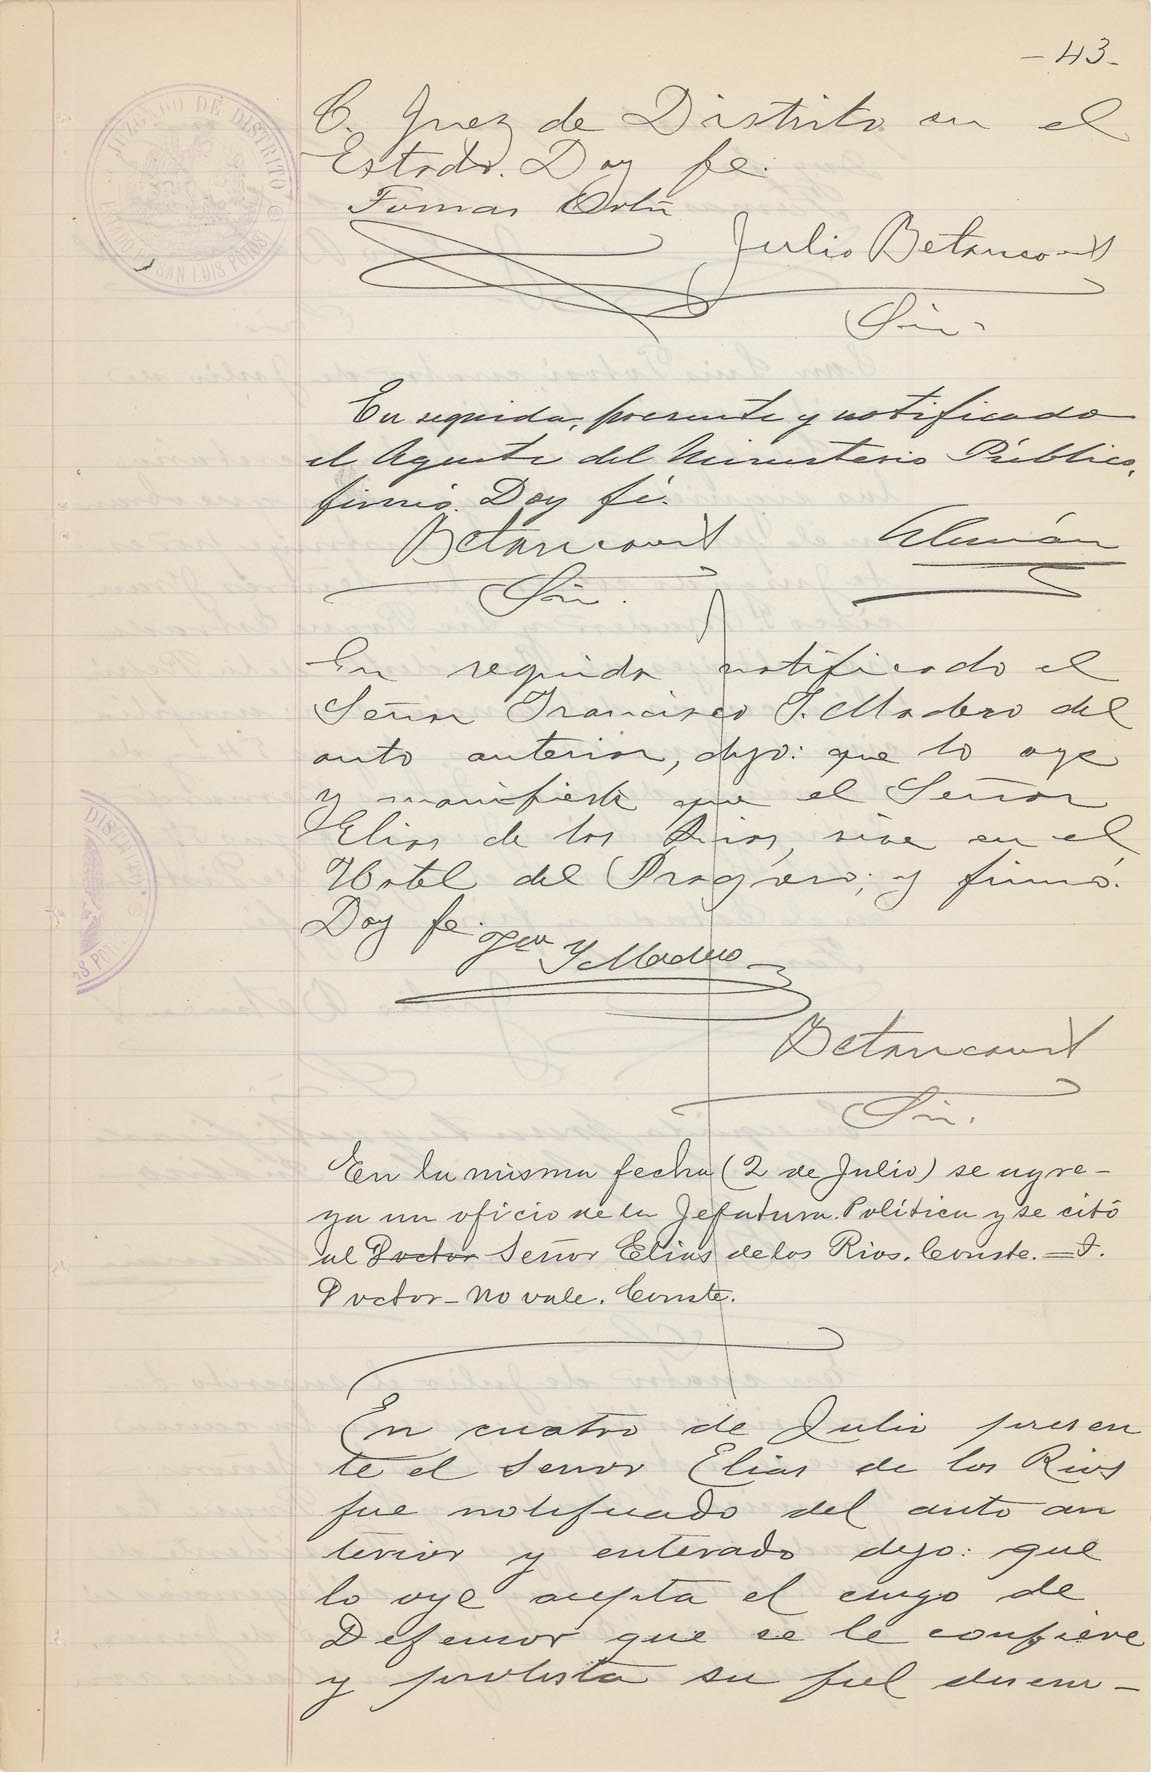 - 43 -
JUZGADO DE DISTRITO
SAN LUIS POTOSI
C. Juez de Distrito en el
Estado. Doy fe.
Tomas Ortiz
Julio Betancourt
Srio.
En seguida, presente y notificado
el Agente del Ministerio Público,
firmó. Doy fé.
Betancourt Alemán
Srio.
En seguida notificado el
Señor Francisco I. Madero del
auto anterior, dijo: que lo oye
y manifiesta que el Señor
Elias de los Rios, vive en el
Hotel del Progreso; y firmó.
Doy fe.
Fco I Madero
Betancourt
Srio.
En la misma fecha (2 de Julio) se agre-
ga un oficio de la Jefatura Política y se citó
al Doctor Señor Elias de los Rios. Conste. = T.
Doctor - No vale. Conste.
En cuatro de Julio presen
te el Senor Elias de los Rios
fue notificado del auto an
terior y enterado dijo: que
lo oye acepta el cargo de
Defensor que se le confiere
y protesta su fiel desem-
DISTRITO
S PO